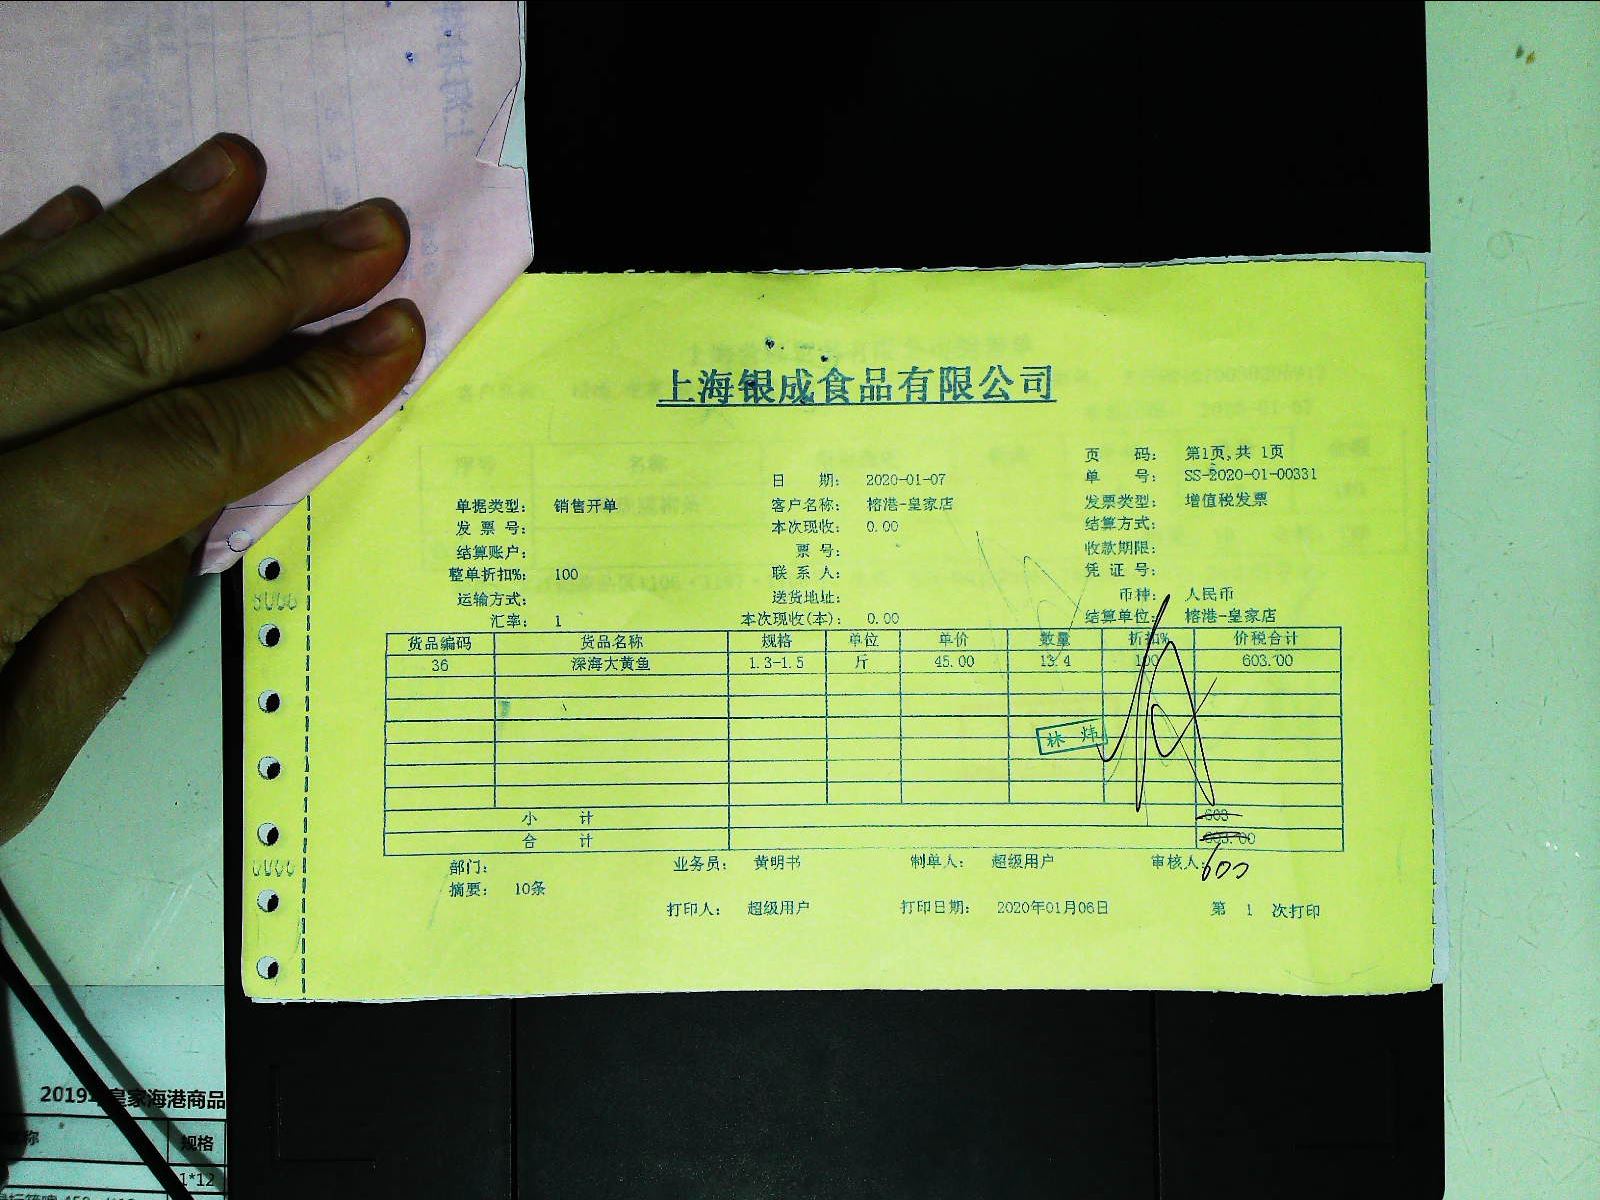 上海银成食品有限公司
页 码: 第1页,共 1页
日 期: 2020-01-07 单 号: SS-2020-01-00331
单据类型: 销售开单 客户名称: 榕港-皇家店 发票类型: 增值税发票
发 票 号: 本次现收: 0.00 结算方式:
结算账户: 票 号: 收款期限:
整单折扣%: 100 联 系 人: 凭 证 号:
运输方式: 送货地址: 币种: 人民币
汇率: 1 本次现收(本): 0.00 结算单位: 榕港-皇家店
货品编码 货品名称 规格 单位 单价 数量 折扣% 价税合计
36 深海大黄鱼 1.3-1.5 斤 45.00 13.4 100 603.00
林 炜
小 计 603
合 计 603.00
部门: 业务员: 黄明书 制单人: 超级用户 审核人: 600
摘要: 10条
打印人: 超级用户 打印日期: 2020年01月06日 第 1 次打印
皇家海港商品
规格
1*12